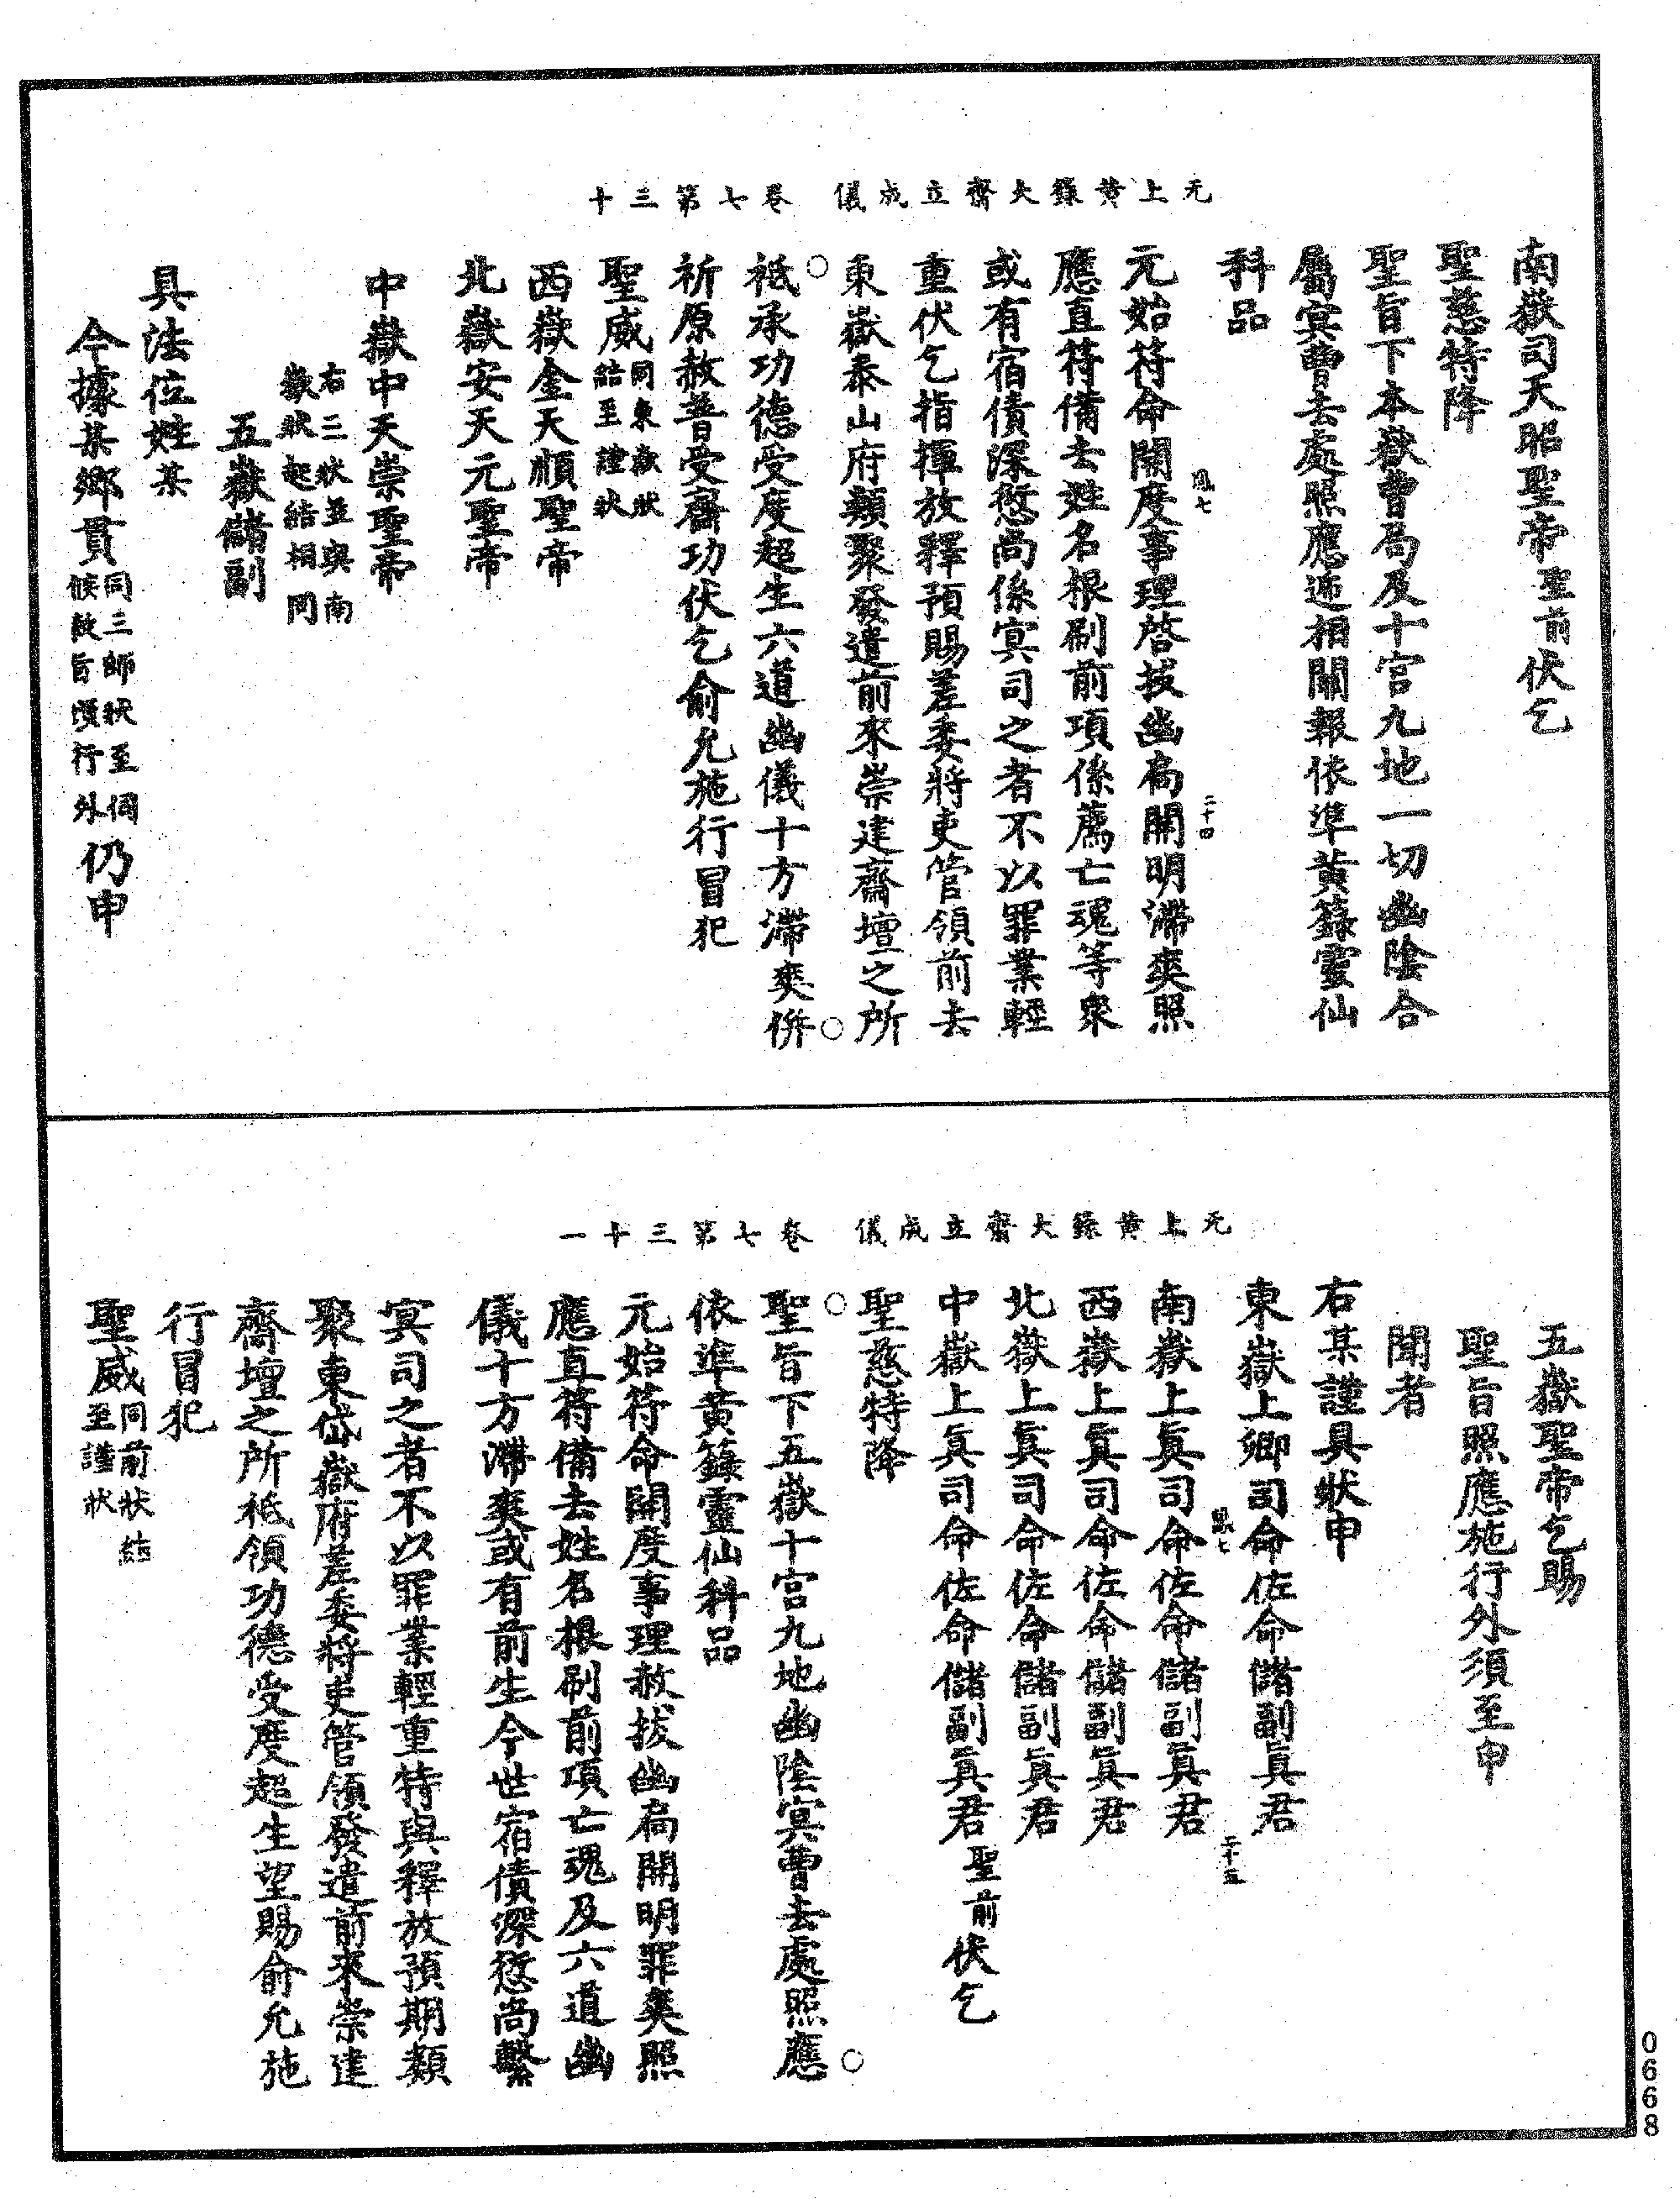 元上黄籙大齋立成儀　卷七第三十
南嶽司天昭聖帝聖前伏乞
聖慈特降
聖旨下本嶽曹局及十宮九地一切幽陰合
屬冥曹去處照應遞相關報依準黄籙靈仙
科品
鳳七
二十四
元始符命開度事理啓拔幽扃開明滯爽照
應直符備去姓名根刷前項係薦亡魂等衆
或有宿債深愆尚係冥司之者不以罪業輕
重伏乞指揮放釋預賜差委將吏管領前去
東嶽泰山府類聚發遣前來崇建齋壇之所
○祗承功德受度超生六道幽儀十方滯爽併○
祈原赦普受齋功伏乞俞允施行冒犯
聖威同東嶽狀
結至謹狀
西嶽金天順聖帝
北嶽安天元聖帝
中嶽中天崇聖帝
右三狀並與南
嶽狀起結相同
五嶽儲副
具法位姓某
今據某鄉貫同三師狀至伺
候敕旨須行外仍申
元上黄籙大齋立成儀　卷七第三十一
五嶽聖帝乞賜
聖旨照應施行外須至申
聞者
右某謹具狀申
東嶽上卿司命佐命儲副眞君
鳳七
二十五
南嶽上眞司命佐命儲副眞君
西嶽上眞司命佐命儲副眞君
北嶽上眞司命佐命儲副眞君
中嶽上眞司命佐命儲副眞君聖前伏乞
聖慈特降
○聖旨下五嶽十宮九地幽陰冥曹去處照應○
依準黄籙靈仙科品
元始符命開度事理赦拔幽扃開明罪爽照
應直符備去姓名根刷前項亡魂及六道幽
儀十方滯爽或有前生今世宿債深愆尚繫
冥司之者不以罪業輕重特與釋放預期類
聚東岱嶽府差委將吏管領發遣前來崇建
齋壇之所祗領功德受度超生望賜俞允施
行冒犯
聖威同前狀結
至謹狀
0668